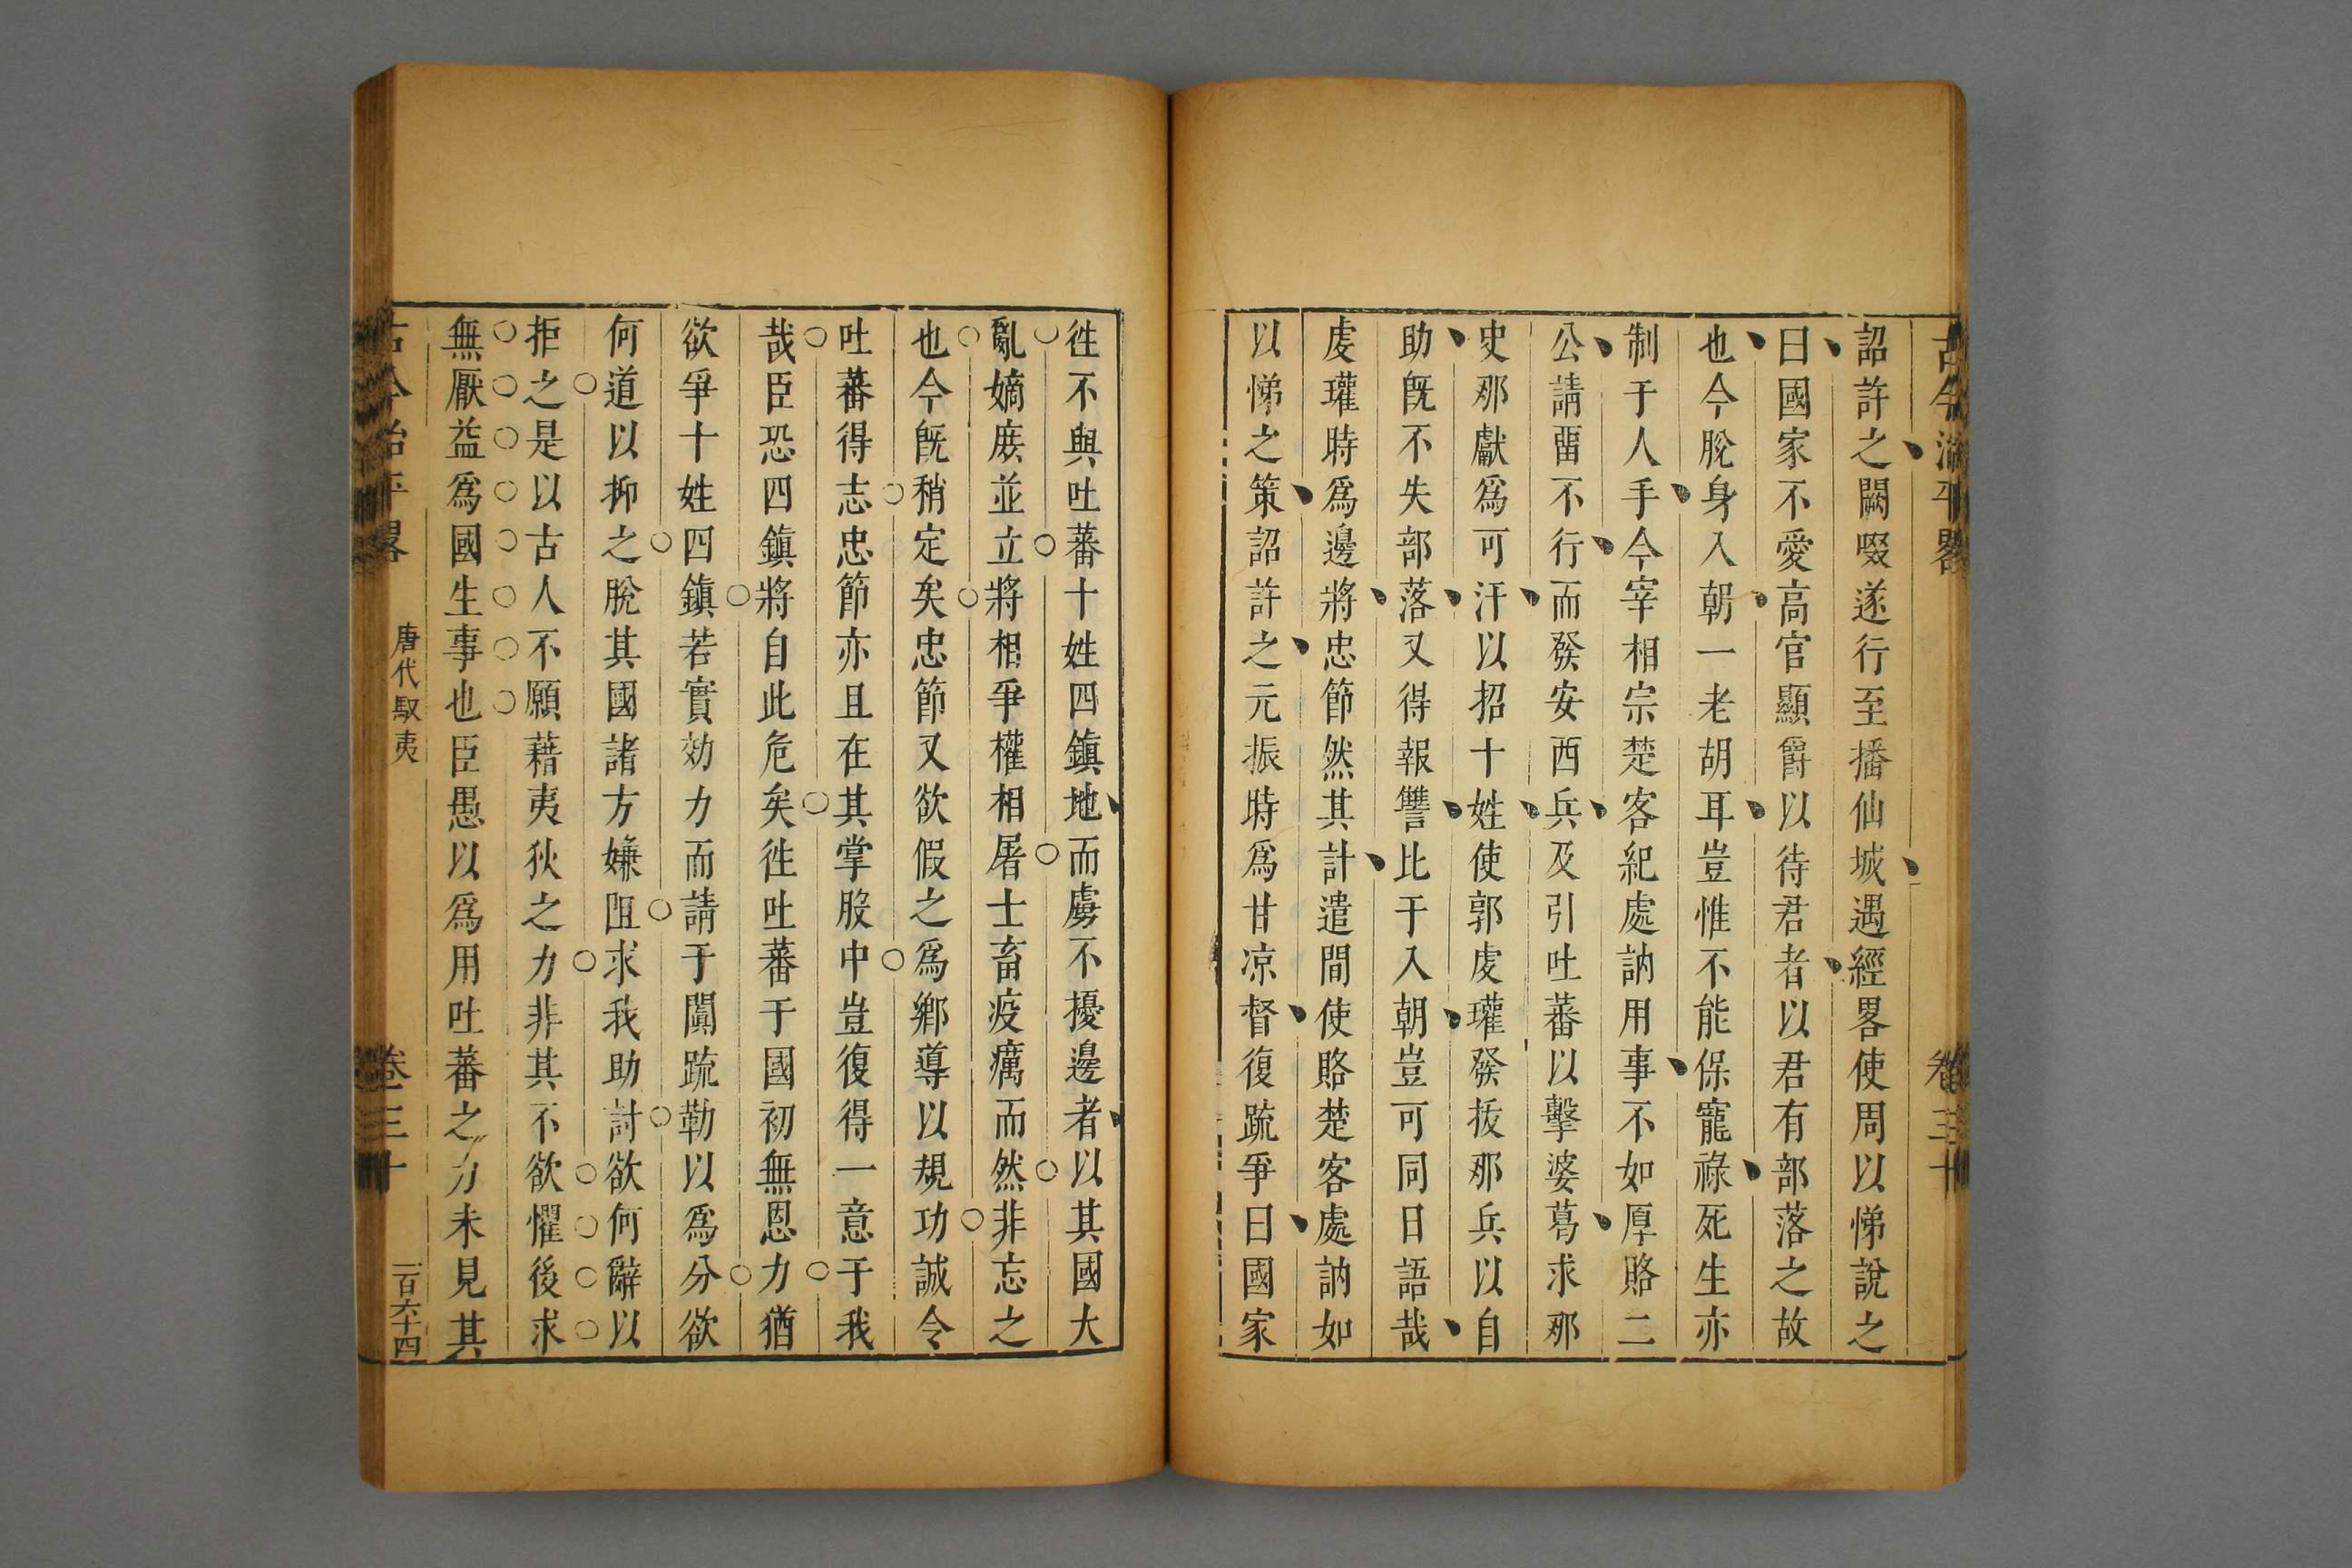 古今治平畧 卷三十
詔許之闕啜遂行至播仙城遇經畧使周以悌說之
曰國家不愛高官顯爵以待君者以君有部落之故
也今脫身入朝一老胡耳豈惟不能保寵祿死生亦
制于人手今宰相宗楚客紀處訥用事不如厚賂二
公請畱不行而發安西兵及引吐蕃以擊婆葛求那
史那獻爲可汗以招十姓使郭虔瓘發拔那兵以自
助旣不失部落又得報讐比于入朝豈可同日語哉
虔瓘時爲邊將忠節然其計遣間使賂楚客處訥如
以悌之策詔許之元振時爲甘凉督復疏爭曰國家
徃不與吐蕃十姓四鎭地而虜不擾邊者以其國大
亂嫡庻並立將相爭權相屠士畜疫癘而然非忘之
也今旣稍定矣忠節又欲假之爲鄕導以規功誠令
吐蕃得志忠節亦且在其掌股中豈復得一意于我
哉臣恐四鎭將自此危矣徃吐蕃于國初無恩力猶
欲爭十姓四鎭若實効力而請于闐疏勒以爲分欲
何道以抑之脫其國諸方嫌阻求我助討欲何辭以
拒之是以古人不願藉夷狄之力非其不欲懼後求
無厭益爲國生事也臣愚以爲用吐蕃之力未見其
古今治平畧 唐代馭夷 卷三十 一百六十四